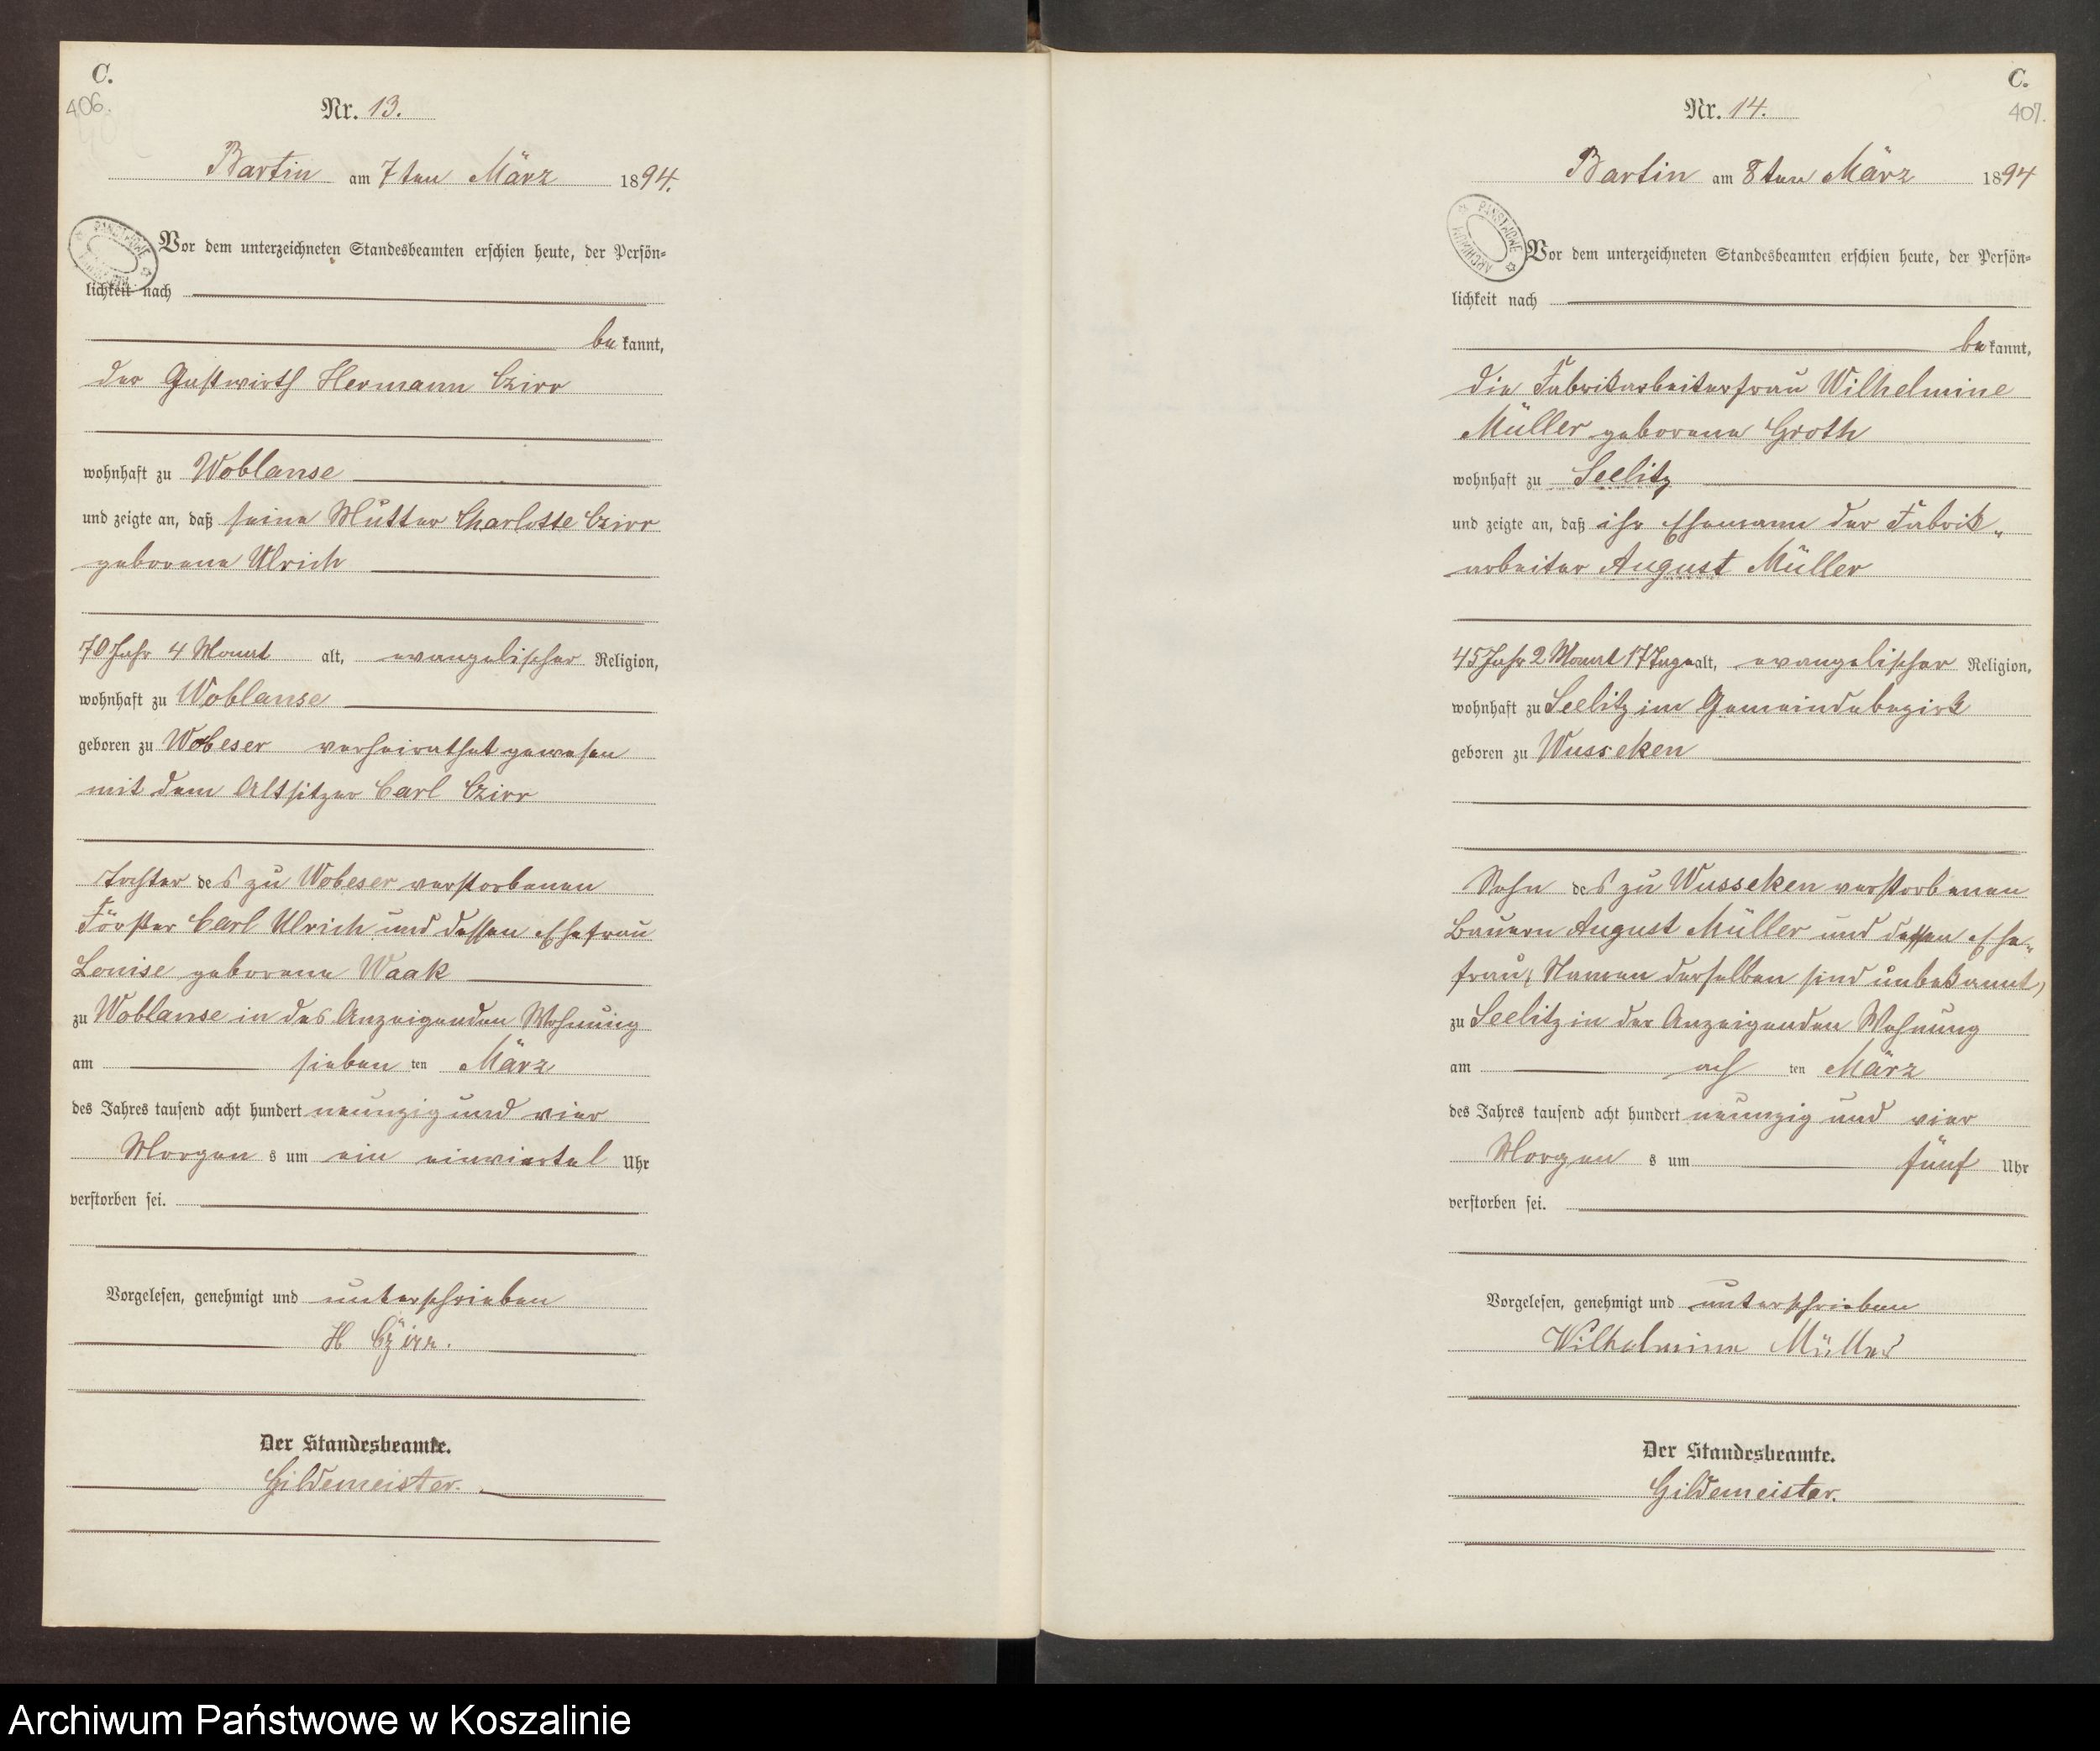 C.
406.
Nr. 13.
Bartin am 7ten März 1894.
PANSTWOWE
Vor dem unterzeichneten Standesbeamten erschien heute, der Persön-
lichkeit nach
be kannt,
der Gastwirth Hermann Czirr
wohnhaft zu Woblanse
und zeigte an, daß seine Mutter Charlotte Czirr
geborene Ulrich
70 Jahr 4 Monat alt, evangelischer Religion,
wohnhaft zu Woblanse
geboren zu Wobeser verheirathet gewesen
mit dem Altsitzer Carl Czirr
Tochter des zu Wobeser verstorbenen
Förster Carl Ulrich und dessen Ehefrau
Louise geborene Waak
zu Woblanse in des Anzeigenden Wohnung
am sieben ten März
des Jahres tausend acht hundert neunzig und vier
Morgen s um ein einviertel Uhr
verstorben sei.
Vorgelesen, genehmigt und unterschrieben
H Czirr.
Der Standesbeamte.
Gildemeister.
C.
407.
Nr. 14.
Bartin am 8ten März 1894
PANSTWOWE ARCHIWUM
Vor dem unterzeichneten Standesbeamten erschien heute, der Persön-
lichkeit nach
be kannt,
die Fabrikarbeiterfrau Wilhelmine
Müller geborene Groth
wohnhaft zu Seelitz
und zeigte an, daß ihr Ehemann der Fabrik-
arbeiter August Müller
45 Jahr 2 Monat 17 Tage alt, evangelischer Religion,
wohnhaft zu Seelitz im Gemeindebezirk
geboren zu Wusseken
Sohn des zu Wusseken verstorbenen
Bauern August Müller und dessen Ehe-
frau, (Namen derselben sind unbekannt)
zu Seelitz in der Anzeigenden Wohnung
am ach ten März
des Jahres tausend acht hundert neunzig und vier
Morgen s um fünf Uhr
verstorben sei.
Vorgelesen, genehmigt und unterschrieben
Wilhelmine Müller
Der Standesbeamte.
Gildemeister.
Archiwum Państwowe w Koszalinie